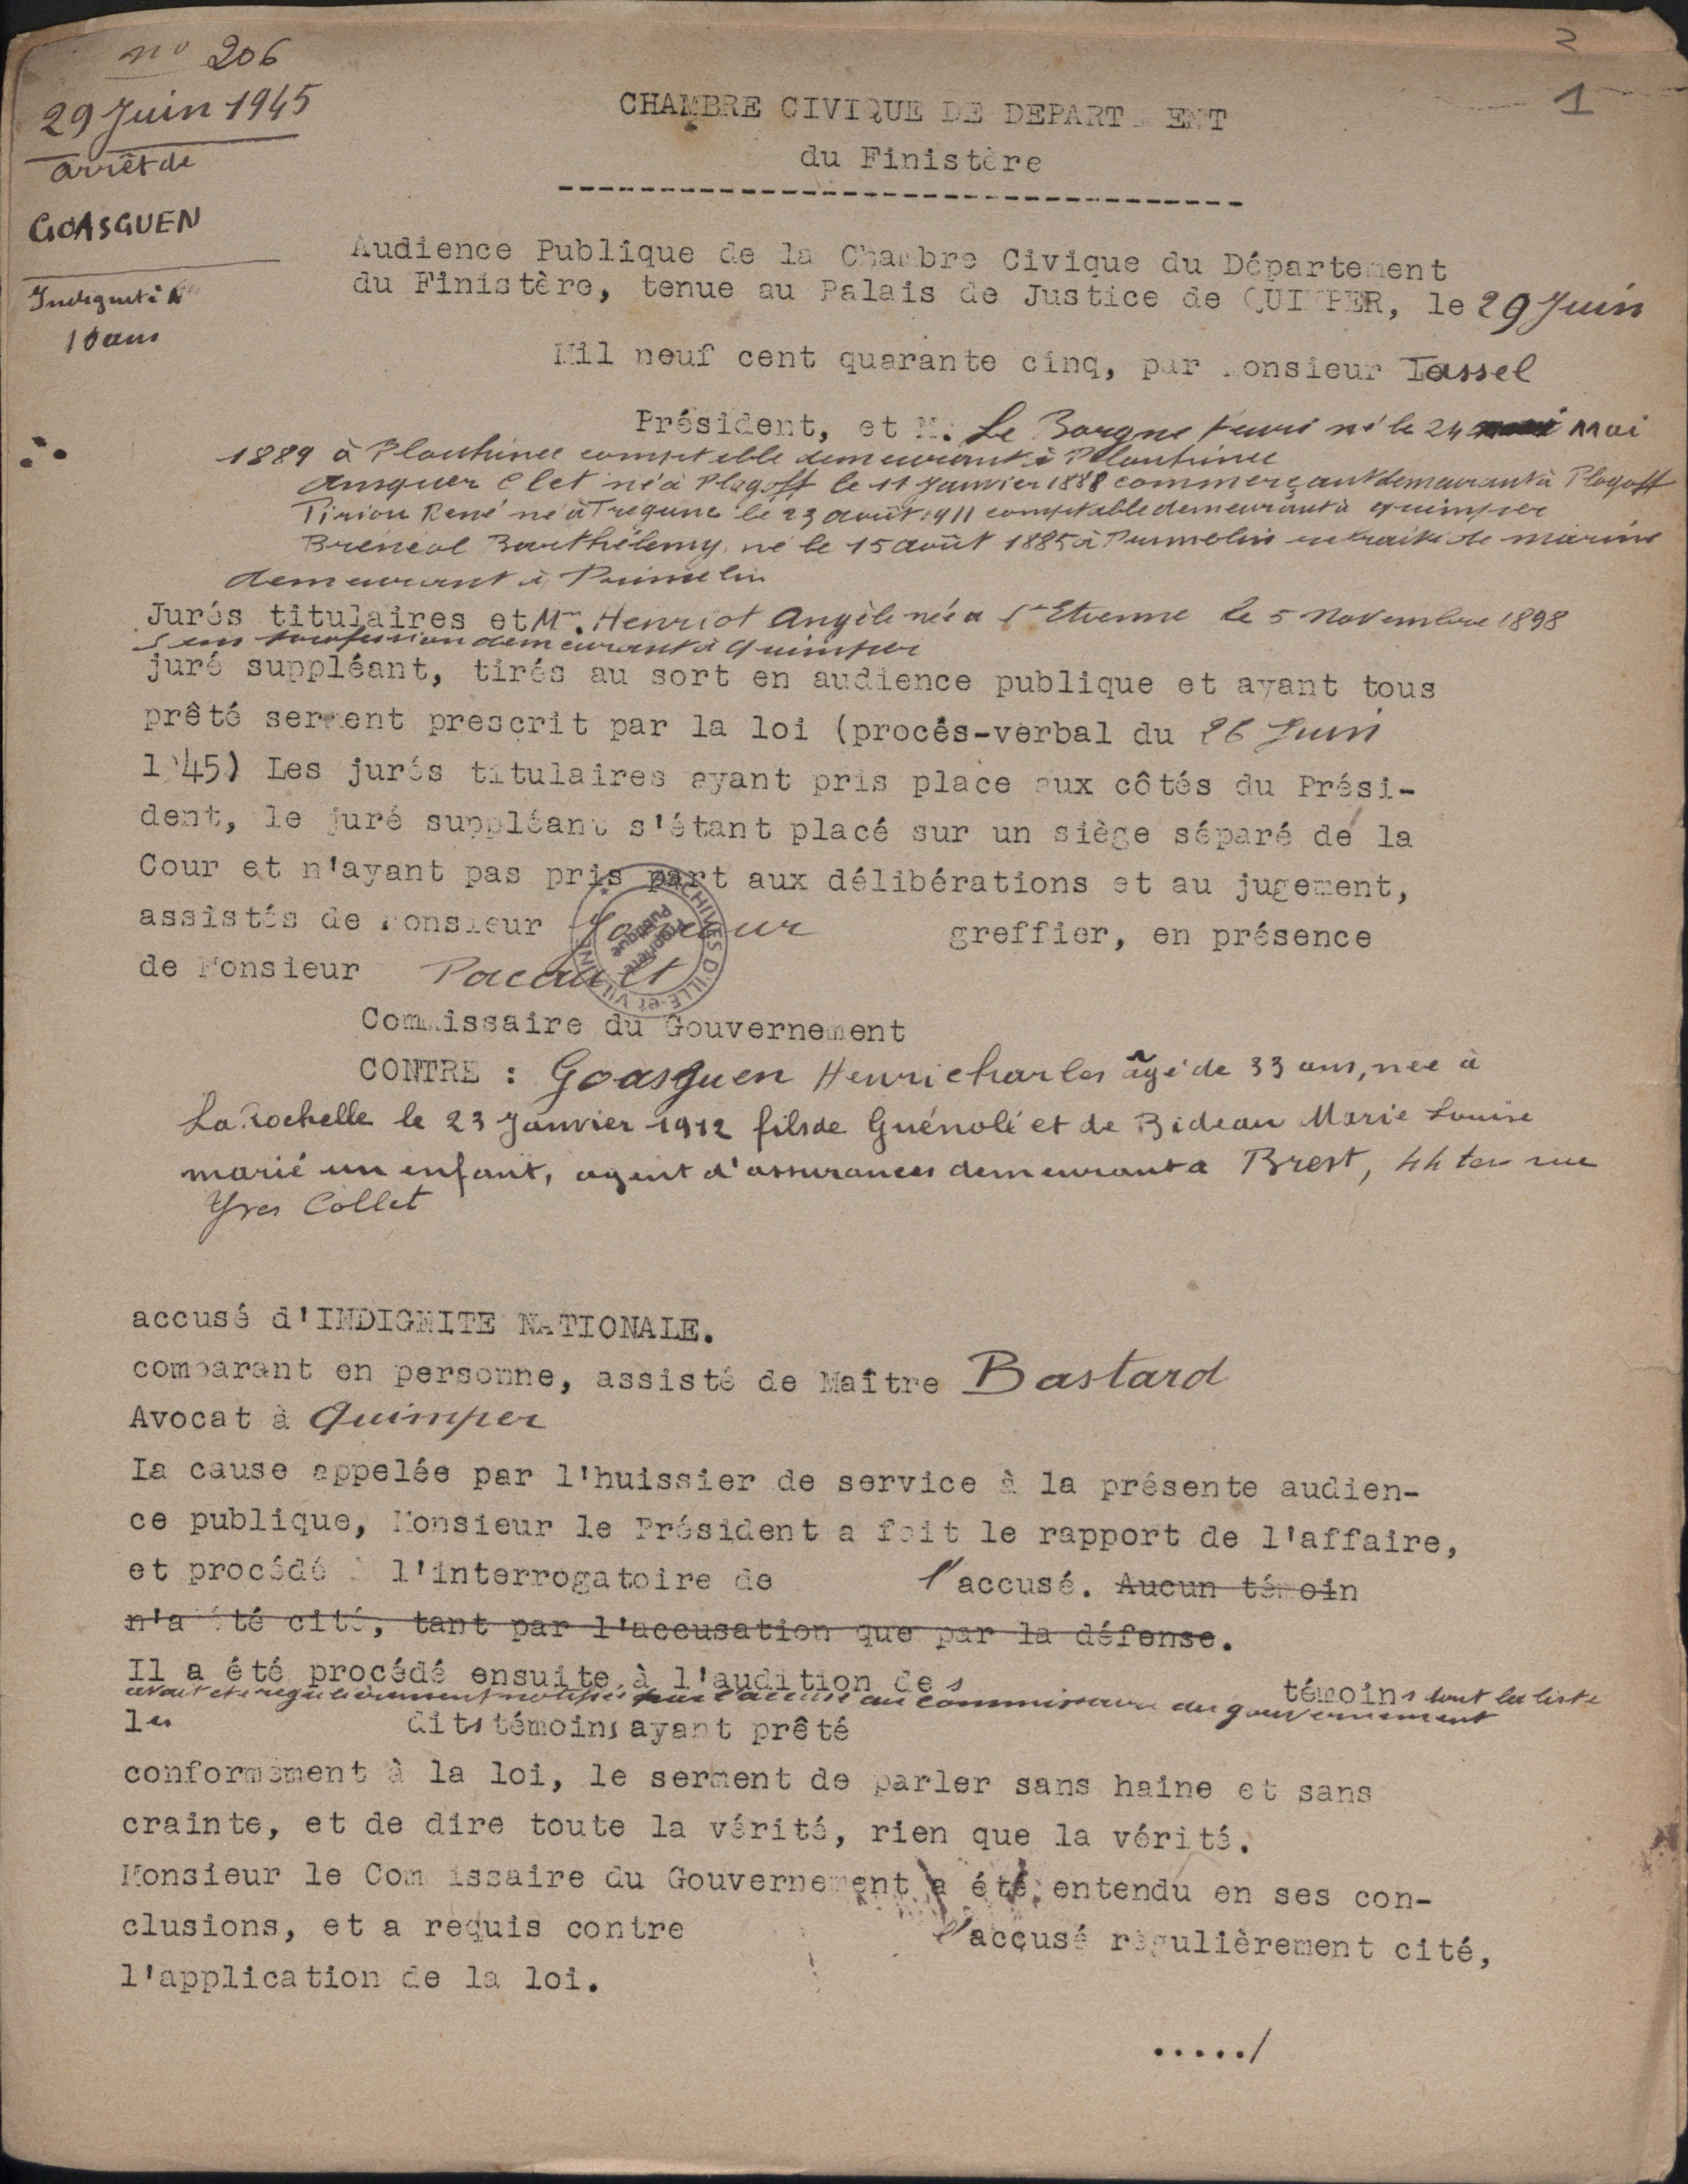 n° 206
29 Juin 1945
arrêt de
GOASGUEN
Indignité Nle
10 ans
2
1
CHAMBRE CIVIQUE DE DEPART ENT
du Finistère
Audience Publique de la Chambre Civique du Département
du Finistère, tenue au Palais de Justice de QUIMPER, le 29 Juin
Mil neuf cent quarante cinq, par Monsieur Tassel
Président, et M. Le Borgne Henri né le 24 mai
1889 à Plouhinec comptable demeurant à Plouhinec
Ansquer Clet né à Plogoff le 11 Janvier 1888 commerçant demeurant à Plogoff
Tirion René né à Tregunc le 23 août 1911 comptable demeurant à quimper
Bréneol Barthélemy né le 15 août 1885 à Primelin retraité de marine
demeurant à Primelin
Jurés titulaires et Mme. Henriot Angèle née à St Etienne le 5 Novembre 1898
sans profession demeurant à Quimper
juré suppléant, tirés au sort en audience publique et ayant tous
prêté serment prescrit par la loi (procès-verbal du 26 Juin
1945) Les jurés titulaires ayant pris place aux côtés du Prési-
dent, le juré suppléant s'étant placé sur un siège séparé de la
Cour et n'ayant pas pris part aux délibérations et au jugement,
assistés de Monsieur greffier, en présence
de Monsieur Pacault
ARCHIVES D'ILLE-et-VILAINE
Propriété
Publique
Commissaire du Gouvernement
CONTRE : Goasguen Henri charles âgé de 33 ans, née à
La Rochelle le 23 Janvier 1912 fils de Guénolé et de Bideau Marie Louise
marié un enfant, agent d'assurances demeurant à Brest, 44 ter rue
Yves Collet
accusé d'INDIGNITE NATIONALE.
comparant en personne, assisté de Maître Bastard
Avocat à Quimper
La cause appelée par l'huissier de service à la présente audien-
ce publique, Monsieur le Président a fait le rapport de l'affaire,
et procédé à l'interrogatoire de l'accusé. Aucun témoin
n'a été cité, tant par l'accusation que par la défense.
Il a été procédé ensuite à l'audition des témoins dont la liste
avait été regulièrement notifiée par l'accusé au commissaire du gouvernement
les dits témoins ayant prêté
conformément à la loi, le serment de parler sans haine et sans
crainte, et de dire toute la vérité, rien que la vérité.
Monsieur le Commissaire du Gouvernement a été entendu en ses con-
clusions, et a requis contre l'accusé régulièrement cité,
l'application de la loi.
...../